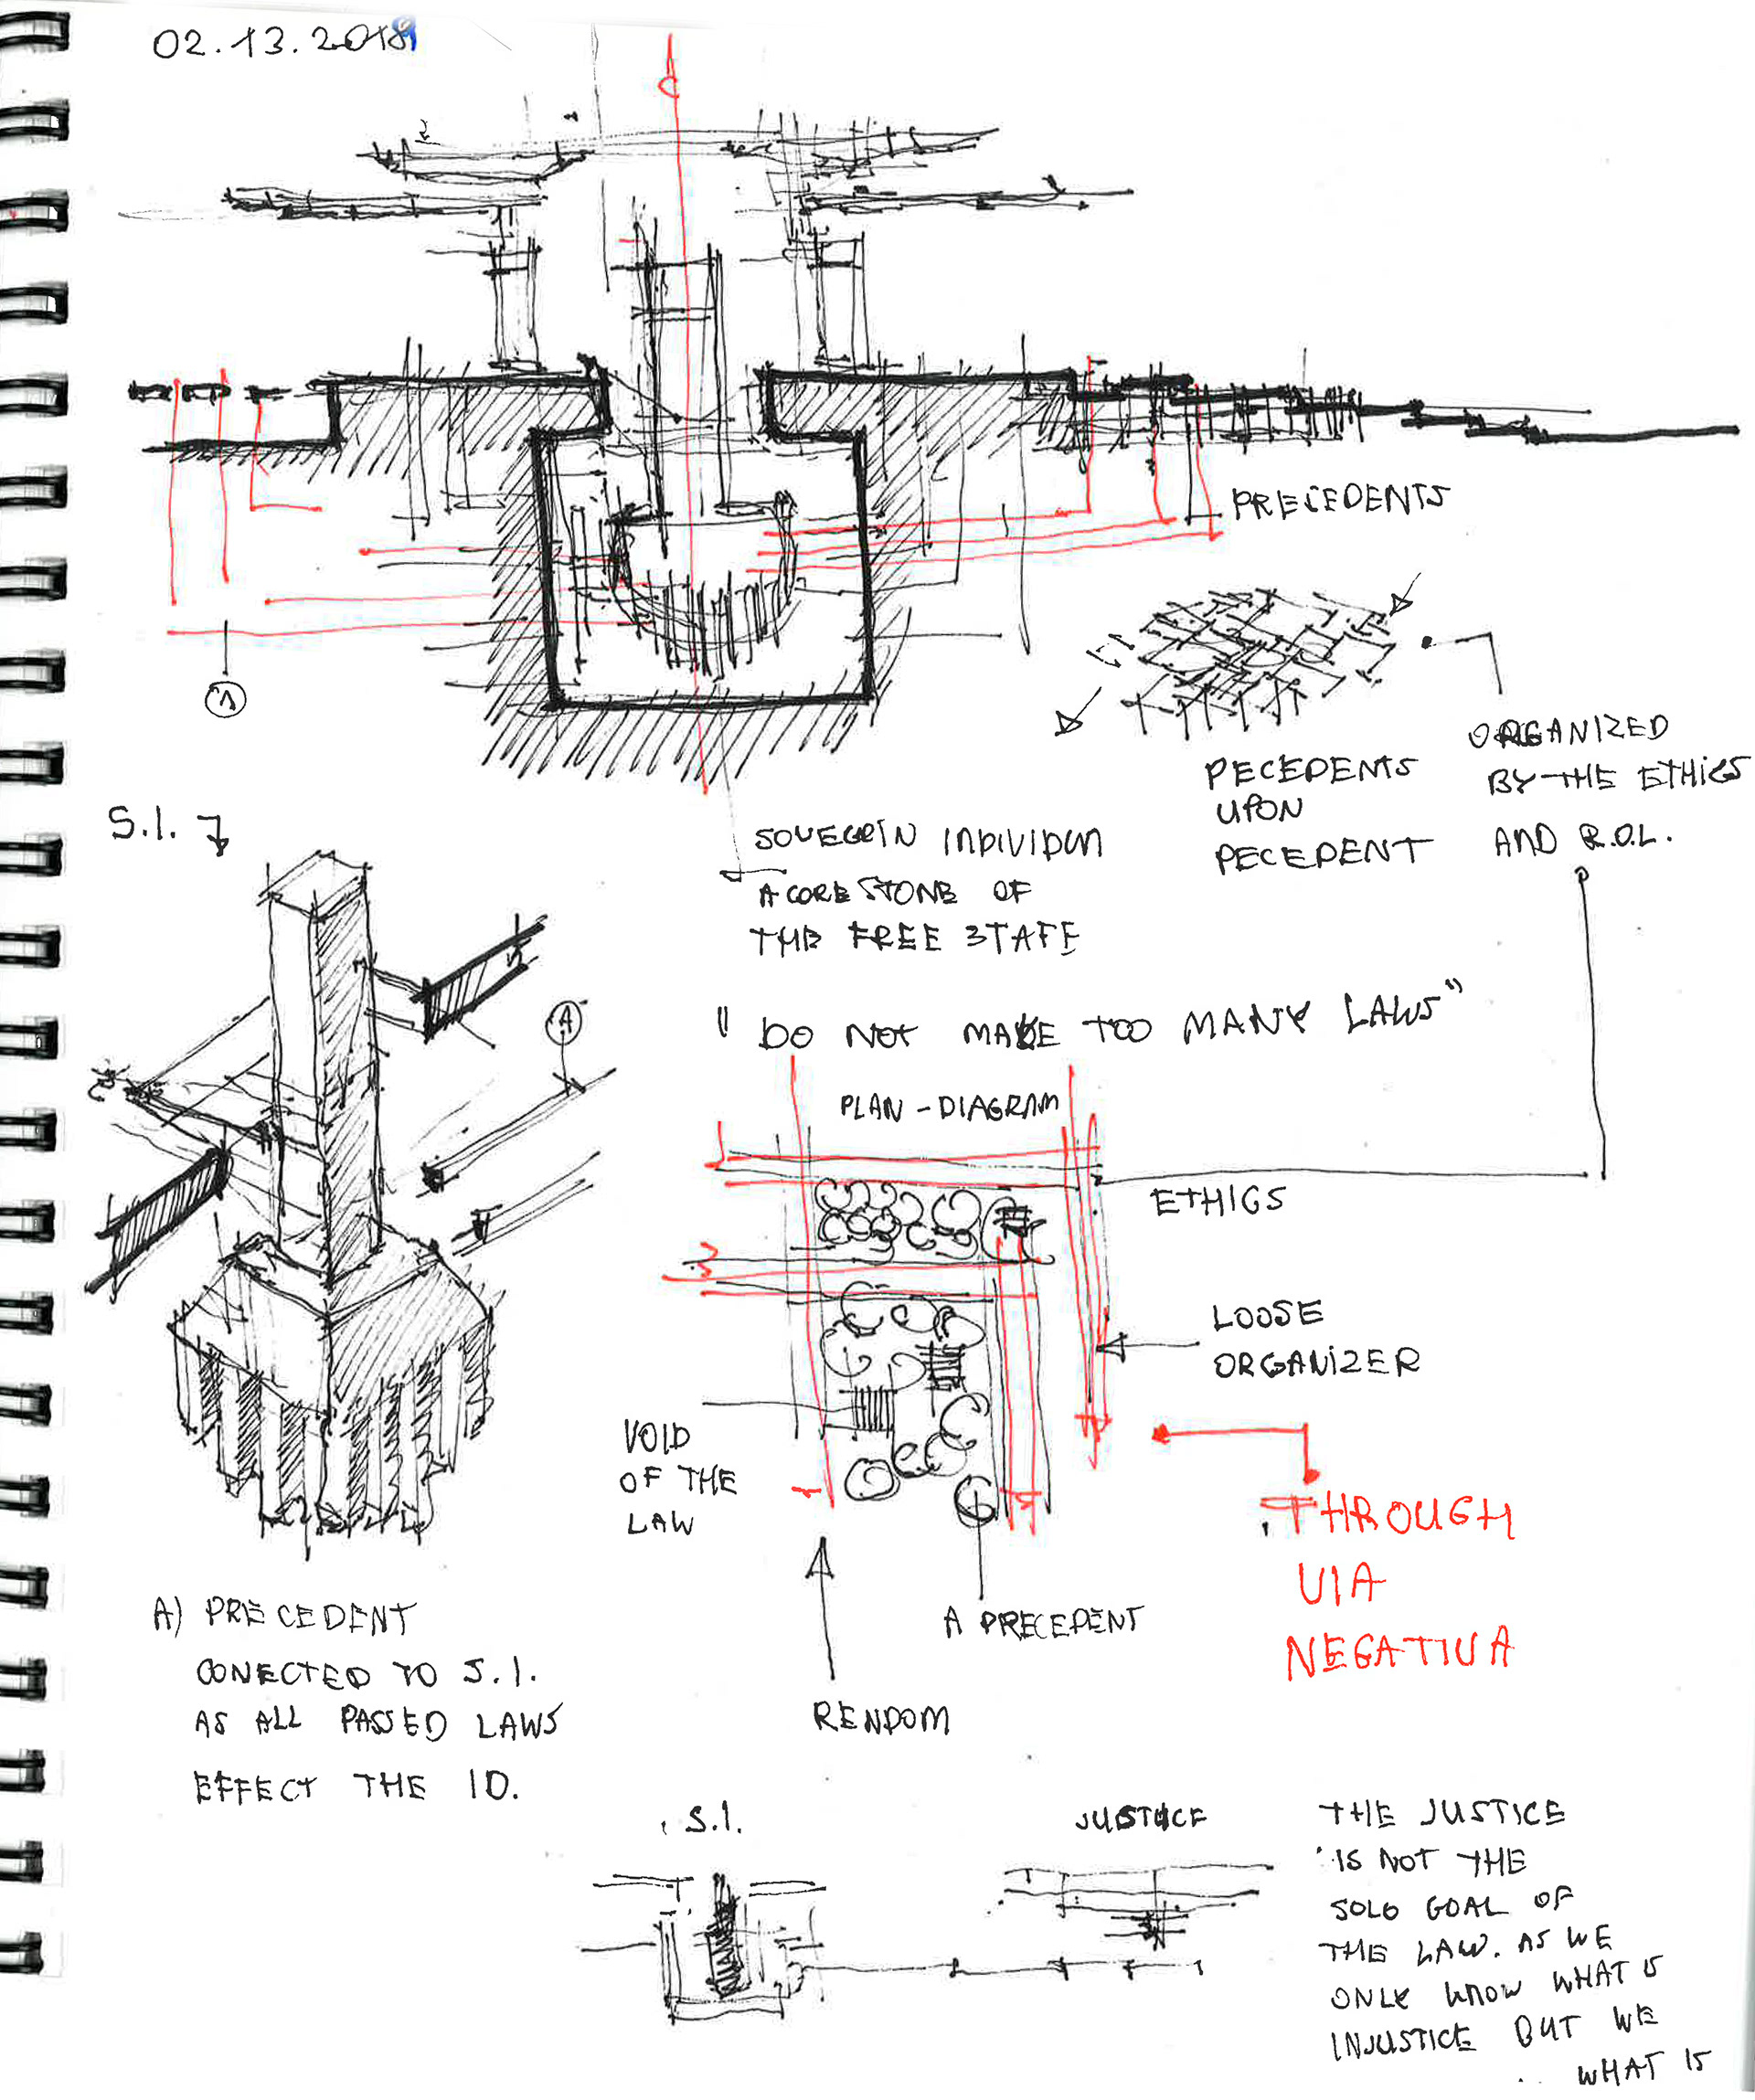 02.13.2018
PRECEDENTS
A
ORGANIZED
BY THE ETHICS
AND R.O.L.
PECEDENTS
UPON
PECEDENT
S.I.
SOVEGRIN INDIVIDUA
A CORE STONE OF
THE FREE STATE
" DO NOT MAKE TOO MANY LAWS"
A
PLAN - DIAGRAM
ETHIGS
LOOSE
ORGANIZER
VOID
OF THE
LAW
THROUGH
VIA
NEGATIVA
A PRECEDENT
RENDOM
A) PRECEDENT
CONECTED TO S.I.
AS ALL PASSED LAWS
EFFECT THE ID.
S.I.
JUSTICE
THE JUSTICE
IS NOT THE
SOLO GOAL OF
THE LAW. AS WE
ONLY KNOW WHAT IS
INJUSTICE BUT WE
WHAT IS